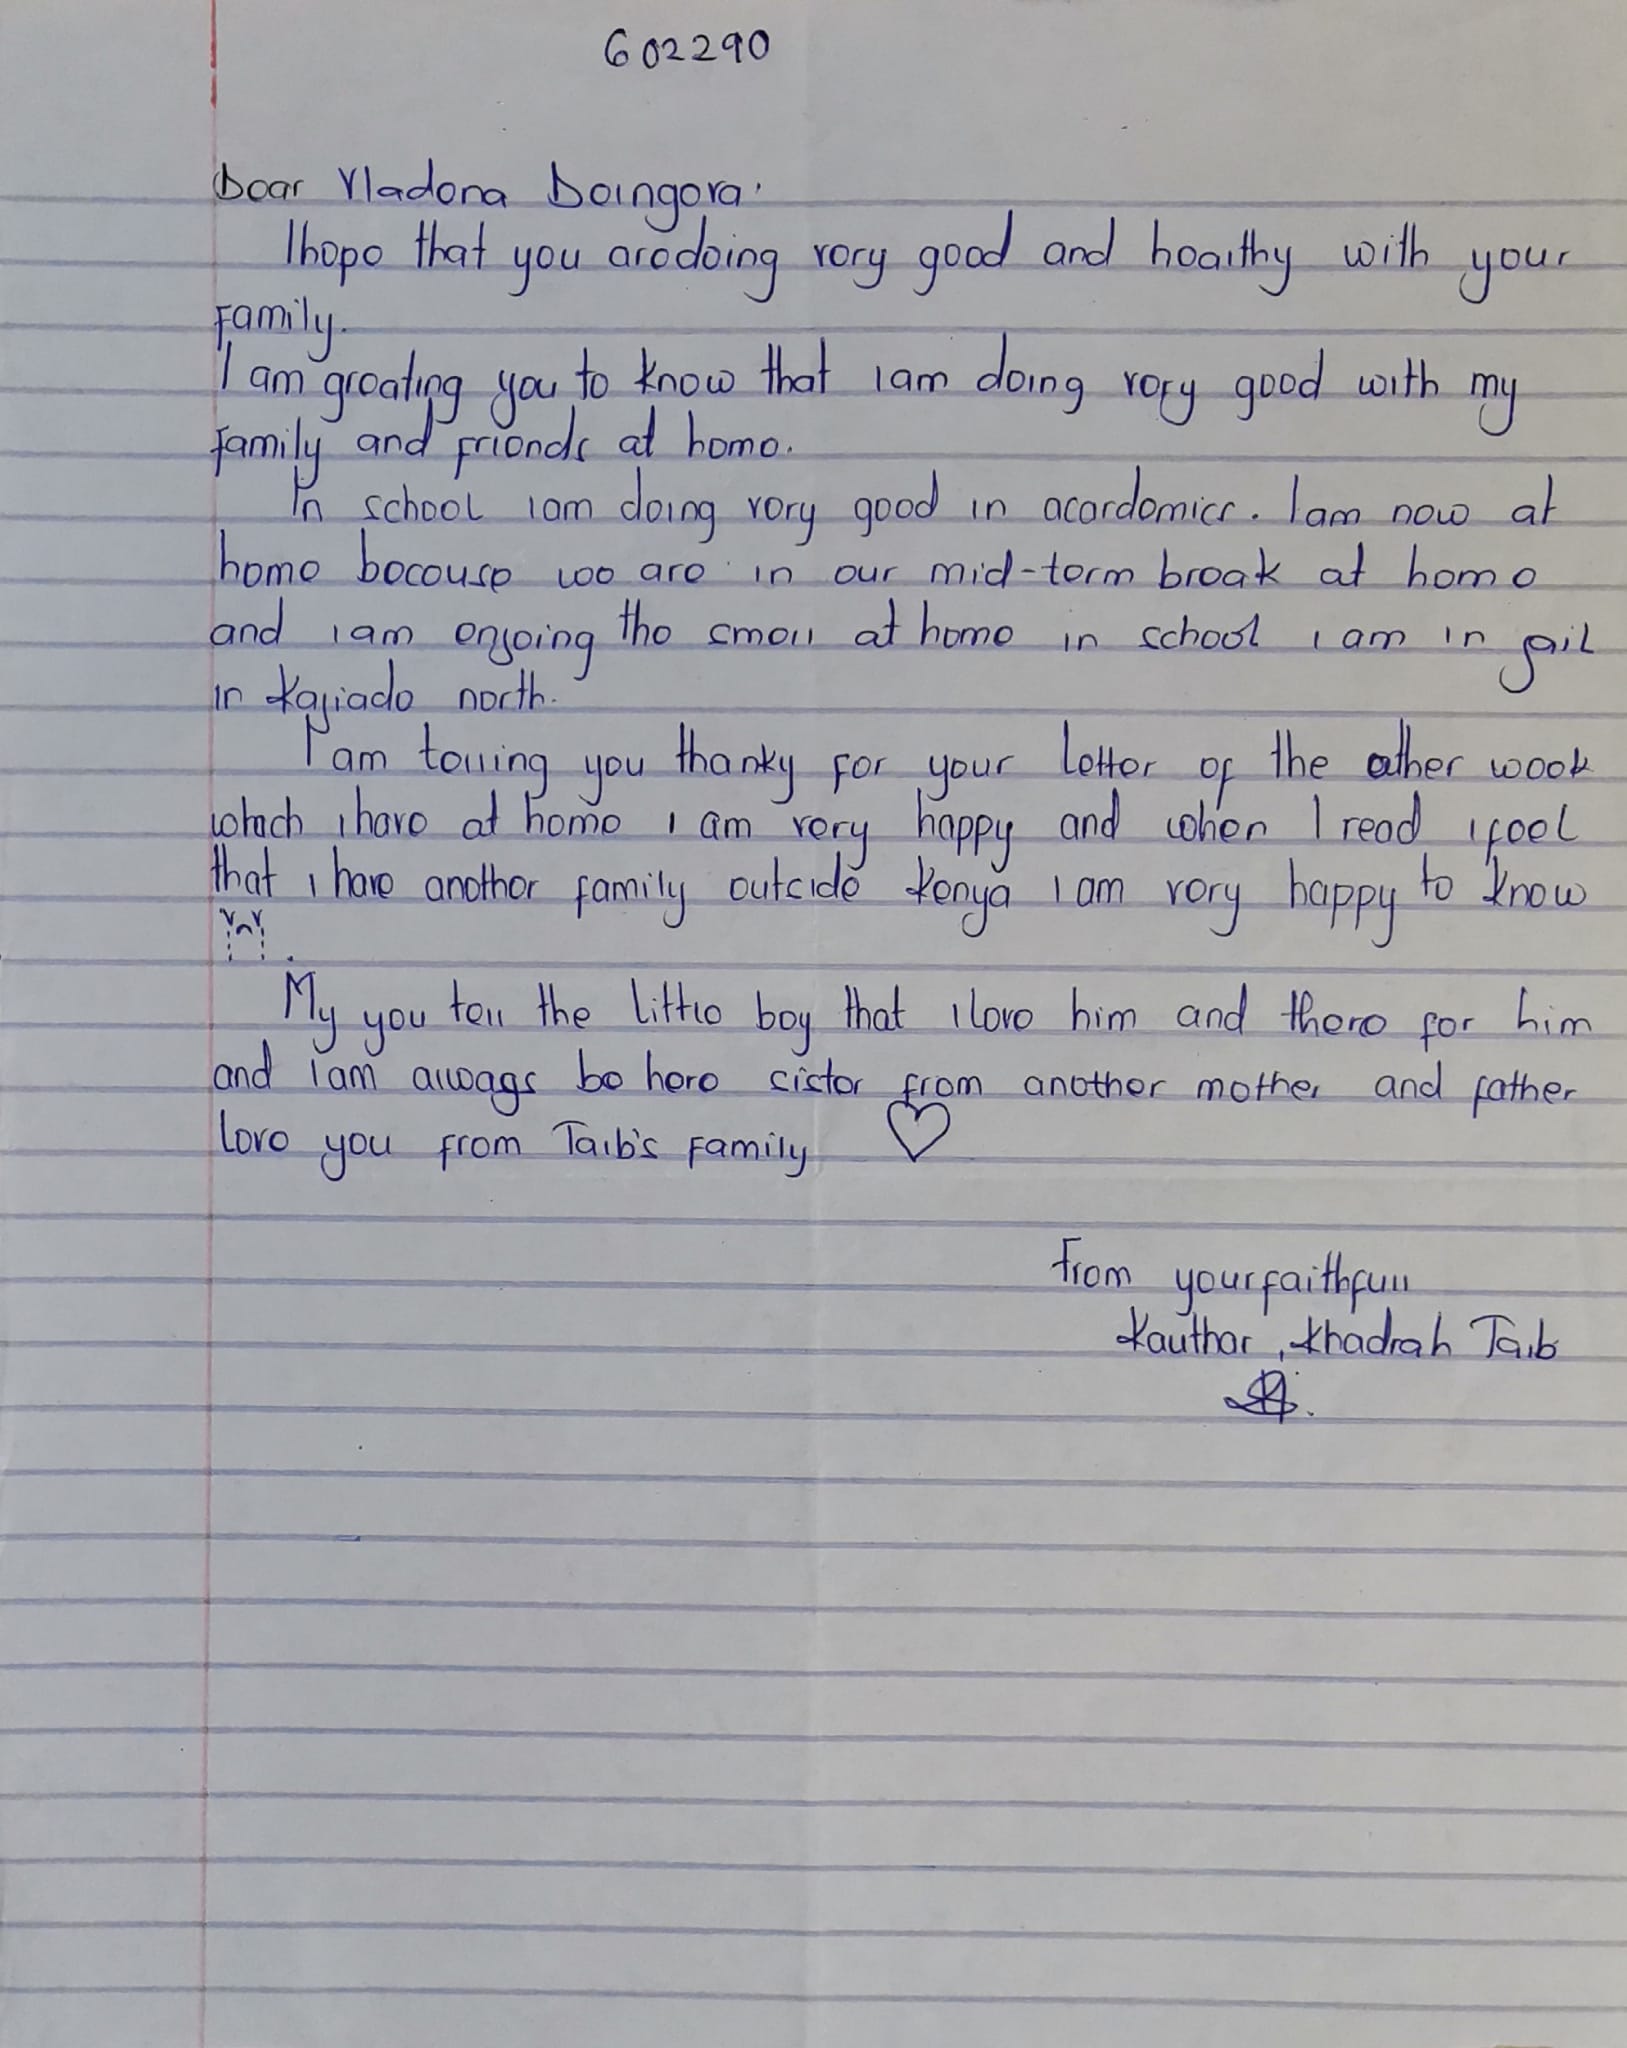 602290
Dear Vladena Doingova.
I hope that you are doing very good and healthy with your
family.
I am greating you to know that I am doing very good with my
family and friends at home.
In school I am doing very good in acardemics. I am now at
home becouse we are in our mid-term break at home
and I am enjoing the smell at home in school I am in jail
in Kajiado north.
I am telling you thanky for your letter of the other week
whach I have at home I am very happy and when I read I feel
that I have another family outside Kenya I am very happy to know
My you tell the little boy that I love him and there for him
and I am allwags be here sister from another mother and father
love you from Taib's family
From your faithfull
Kauthar, Khadrah Taib